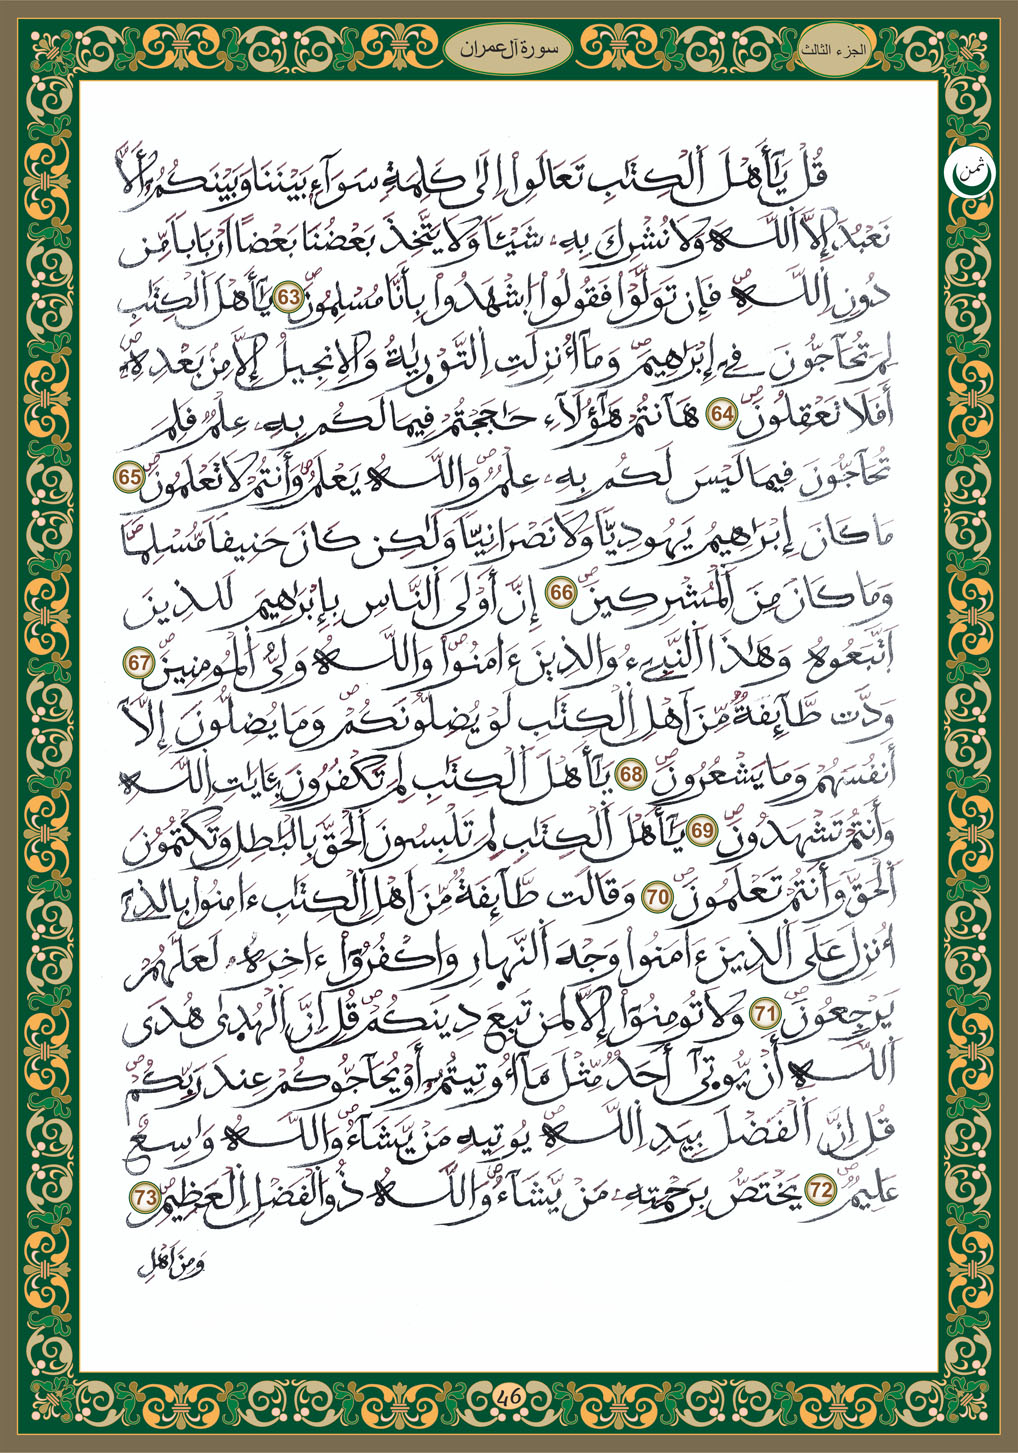 الجزء الثالث
سورة آل عمران
ثمن
قُلْ يَٰٓأَهْلَ اَ۬لْكِتَٰبِ تَعَالَوِاْ اِلَىٰ كَلِمَةٖ سَوَآءِۢ بَيْنَنَا وَبَيْنَكُمُۥٓ أَلَّا
نَعْبُدَ إِلَّا اَ۬للَّهَ وَلَا نُشْرِكَ بِهِۦ شَيْـٔاٗ وَلَا يَتَّخِذَ بَعْضُنَا بَعْضاً اَرْبَاباٗ مِّن
دُونِ اِ۬للَّهِۖ فَإِن تَوَلَّوْاْ فَقُولُواْ اُ۪شْهَدُواْ بِأَنَّا مُسْلِمُونَۖ 63 يَٰٓأَهْلَ اَ۬لْكِتَٰبِ
لِمَ تُحَآجُّونَ فِےٓ إِبْرَٰهِيمَۖ وَمَآ أُنزِلَتِ اِ۬لتَّوْر۪يٰةُ وَالِانجِيلُ إِلَّا مِنۢ بَعْدِهِۦٓۖ
أَفَلَا تَعْقِلُونَۖ 64 هَٰٓأَنتُمْ هَٰٓؤُلَآءِ حَٰجَجْتُمْ فِيمَا لَكُم بِهِۦ عِلْمٞ فَلِمَ
تُحَآجُّونَ فِيمَا لَيْسَ لَكُم بِهِۦ عِلْمٞۖ وَاللَّهُ يَعْلَمُۖ وَأَنتُمْ لَا تَعْلَمُونَۖ 65
مَا كَانَ إِبْرَٰهِيمُ يَهُودِيّاٗ وَلَا نَصْرَانِيّاٗ وَلَٰكِن كَانَ حَنِيفاٗ مُّسْلِماٗۖ
وَمَا كَانَ مِنَ اَ۬لْمُشْرِكِينَۖ 66 إِنَّ أَوْلَى اَ۬لنَّاسِ بِإِبْرَٰهِيمَ لَلذِينَ
اَ۪تَّبَعُوهُ وَهَٰذَا اَ۬لنَّبِےٓءُ وَالذِينَ ءَامَنُواْۖ وَاللَّهُ وَلِيُّ اُ۬لْمُومِنِينَۖ 67
وَدَّت طَّآئِفَةٞ مِّنَ اَهْلِ اِ۬لْكِتَٰبِ لَوْ يُضِلُّونَكُمْۖ وَمَا يُضِلُّونَ إِلَّآ
أَنفُسَهُمْ وَمَا يَشْعُرُونَۖ 68 يَٰٓأَهْلَ اَ۬لْكِتَٰبِ لِمَ تَكْفُرُونَ بِـَٔايَٰتِ اِ۬للَّهِ
وَأَنتُمْ تَشْهَدُونَۖ 69 يَٰٓأَهْلَ اَ۬لْكِتَٰبِ لِمَ تَلْبِسُونَ اَ۬لْحَقَّ بِالْبَٰطِلِ وَتَكْتُمُونَ
اَ۬لْحَقَّ وَأَنتُمْ تَعْلَمُونَۖ 70 وَقَالَت طَّآئِفَةٞ مِّنَ اَهْلِ اِ۬لْكِتَٰبِ ءَامِنُواْ بِالذِےٓ
أُنزِلَ عَلَى اَ۬لذِينَ ءَامَنُواْ وَجْهَ اَ۬لنَّهَارِ وَاكْفُرُوٓاْ ءَاخِرَهُۥ لَعَلَّهُمْ
يَرْجِعُونَۖ 71 وَلَا تُومِنُوٓاْ إِلَّا لِمَن تَبِعَ دِينَكُمْۖ قُلِ اِنَّ اَ۬لْهُد۪ىٰ هُدَى
اَ۬للَّهِ أَنْ يُّوت۪ىٰٓ أَحَدٞ مِّثْلَ مَآ أُوتِيتُمُۥٓ أَوْ يُحَآجُّوكُمْ عِندَ رَبِّكُمْۖ
قُلِ اِنَّ اَ۬لْفَضْلَ بِيَدِ اِ۬للَّهِۖ يُوتِيهِ مَنْ يَّشَآءُۖ وَاللَّهُ وَٰسِعٌ
عَلِيمٞۖ 72 يَخْتَصُّ بِرَحْمَتِهِۦ مَنْ يَّشَآءُۖ وَاللَّهُ ذُو اُ۬لْفَضْلِ اِ۬لْعَظِيمِۖ 73
وَمِنَ اَهْلِ
46